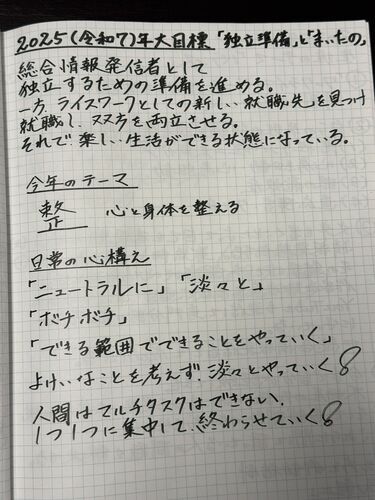 2025(令和7)年大目標「独立準備」と「まいたの」
総合情報発信者として
独立するための準備を進める。
一方、ライスワークとしての新しい就職先を見つけ
就職し、双方を両立させる。
それで楽しい生活ができる状態になっている。
今年のテーマ
整 心と身体を整える
日常の心構え
「ニュートラルに」「淡々と」
「ボチボチ」
「できる範囲でできることをやっていく」
よけいなことを考えず、淡々とやっていく
人間はマルチタスクはできない、
1つ1つに集中して、終わらせていく